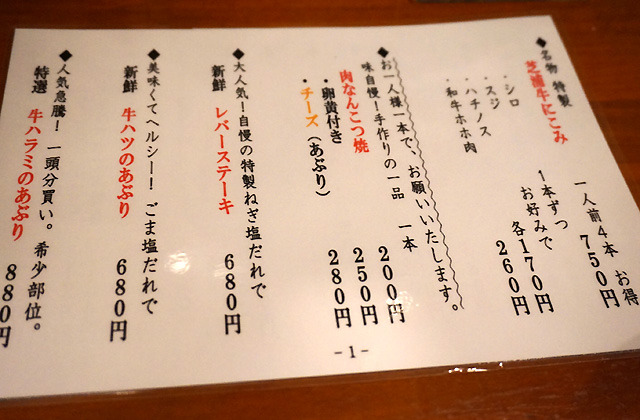 ◆名物 特製
芝浦牛にこみ
一人前4本 お得
750円
1本ずつ
お好みで
・シロ
・スジ
・ハチノス
各170円
・和牛ホホ肉
260円
お一人様一本で、お願いいたします。
◆味自慢!手作りの一品 一本
肉なんこつ焼 200円
・卵黄付き 250円
・チーズ(あぶり) 280円
◆大人気!自慢の特製ねぎ塩だれで
新鮮 レバーステーキ 680円
◆美味くてヘルシー!ごま塩だれで
新鮮 牛ハツのあぶり 680円
◆人気急騰! 一頭分買い。希少部位。
特選 牛ハラミのあぶり 880円
-1-